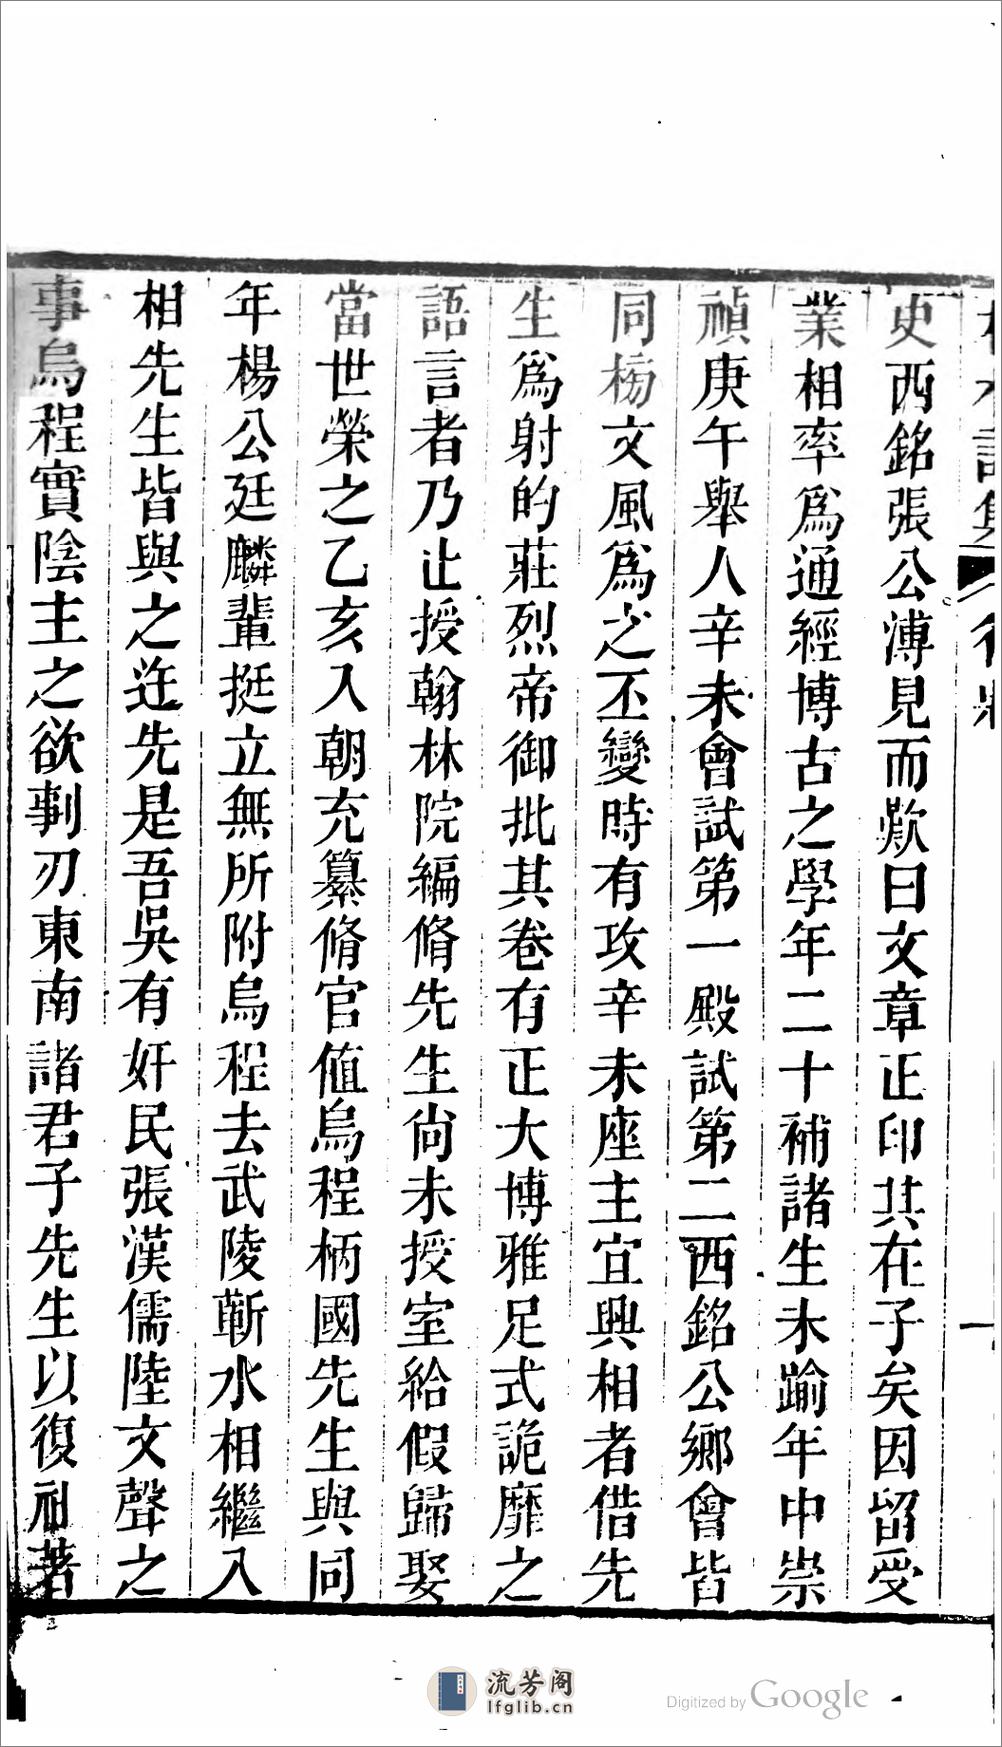 史西銘張公溥見而歎曰文章正印其在子矣因留受
業相率爲通經博古之學年二十補諸生未踰年中崇
禎庚午舉人辛未會試第一殿試第二西銘公鄉會皆
同榜文風爲之丕變時有攻辛未座主宜興相者借先
生爲射的莊烈帝御批其卷有正大博雅足式詭靡之
語言者乃止授翰林院編脩先生尙未授室給假歸娶
當世榮之乙亥入朝充纂脩官値烏程柄國先生與同
年楊公廷麟輩挺立無所附烏程去武陵蘄水相繼入
相先生皆與之迕先是吾吳有奸民張漢儒陸文聲之
事烏程實陰主之欲剚刃東南諸君子先生以復社著
一
流芳阁
lfglib.cn
Digitized by Google